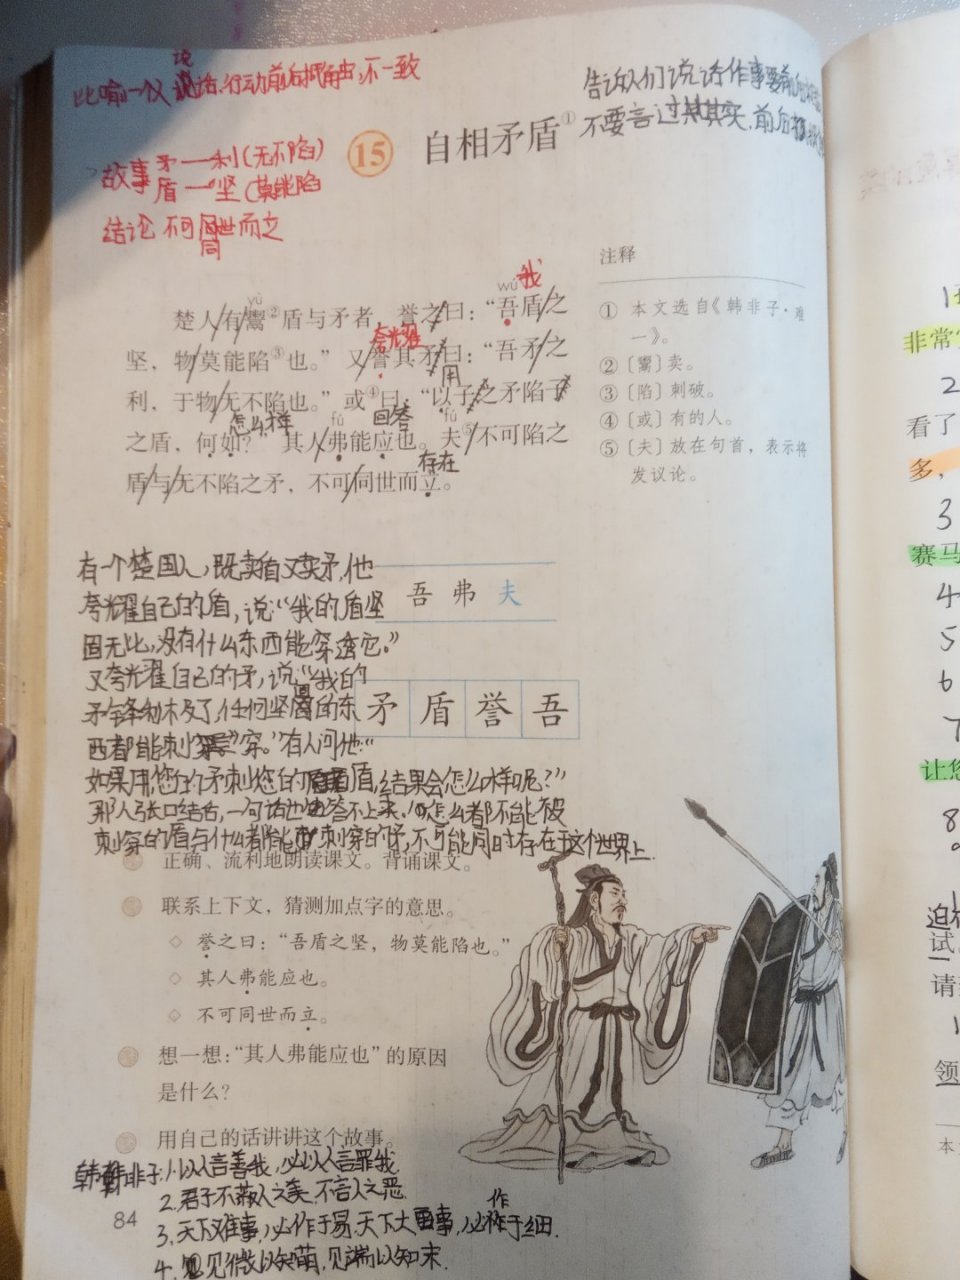 比喻一个人说话、行动前后相抵触,不一致
告诉人们说话作事要前后
不要言过其实,前后
15 自相矛盾①
故事 矛—利(无不陷)
盾—坚(莫能陷
结论 不可同世而立
同
注释
① 本文选自《韩非子·难
一》。
②〔鬻〕卖。
③〔陷〕刺破。
④〔或〕有的人。
⑤〔夫〕放在句首,表示将
发议论。
yù
wú 我
楚人有鬻②盾与矛者,誉之曰:“吾盾之
夸光耀
坚,物莫能陷③也。”又誉其矛曰:“吾矛之
用
利,于物无不陷也。”或④曰:“以子之矛陷子
怎么样 fú 回答 fú
之盾,何如?”其人弗能应也。夫⑤不可陷之
存在
盾与无不陷之矛,不可同世而立。
有一个楚国人,既卖盾又卖矛,他
夸光耀自己的盾,说:“我的盾坚
固无比,没有什么东西能穿透它。”
又夸光耀自己的矛,说:“我的
矛锋利极了,任何坚固的东
西都能刺穿。”有人问他:“
如果用您的矛刺您的盾,结果会怎么样呢?”
那人张口结舌,一句话也答不上来。怎么都不能被
刺穿的盾与什么都能刺穿的矛,不可能同时存在于这个世界上.
吾 弗 夫
矛 盾 誉 吾
正确、流利地朗读课文。背诵课文。
联系上下文,猜测加点字的意思。
◇ 誉之曰:“吾盾之坚,物莫能陷也。”
◇ 其人弗能应也。
◇ 不可同世而立。
想一想:“其人弗能应也”的原因
是什么?
用自己的话讲讲这个故事。
韩非子:1.以人言善我,必以人言罪我
2.君子不蔽人之美,不言人之恶
作
3.天下难事,必作于易,天下大事,必作于细.
4.见微以知萌,见端以知末.
84
非常
2
看了
多,
3
赛马
4
5
6
7
让您
8
9
迫
试
请
1
领
本